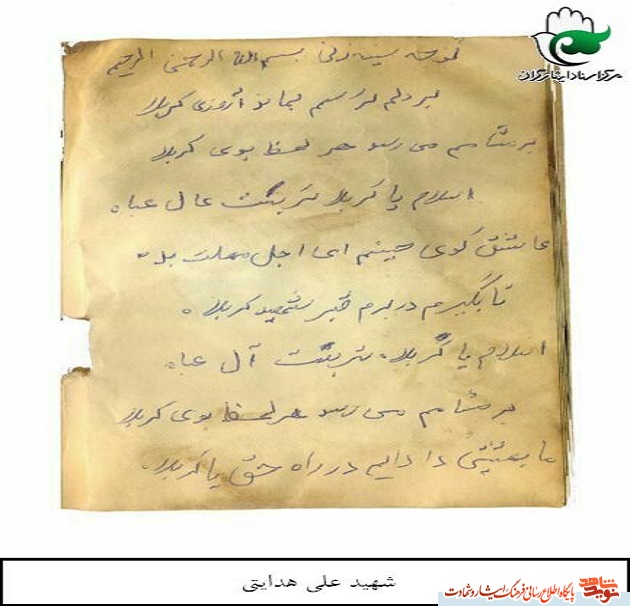 مرکز اسناد ایثارگران
نوحه سینه زنی بسم الله الرحمن الرحیم
بر دلم ترسم بماند آرزوی کربلا
بر مشامم می رسد هر لحظه بوی کربلا
اسلام یا کربلا تربتت عال عباه
عاشق کوی حسینم ای اجل مهلت بده
تا بگیرم در برم قبر شهید کربلا
اسلام یا کربلا تربتت آل عباه
بر مشامم می رسد هر لحظه بوی کربلا
ما دادایم در راه حق یا کربلا
شهید علی هدایتی
نوید شاهد
پایگاه اطلاع رسانی فرهنگ ایثار و شهادت